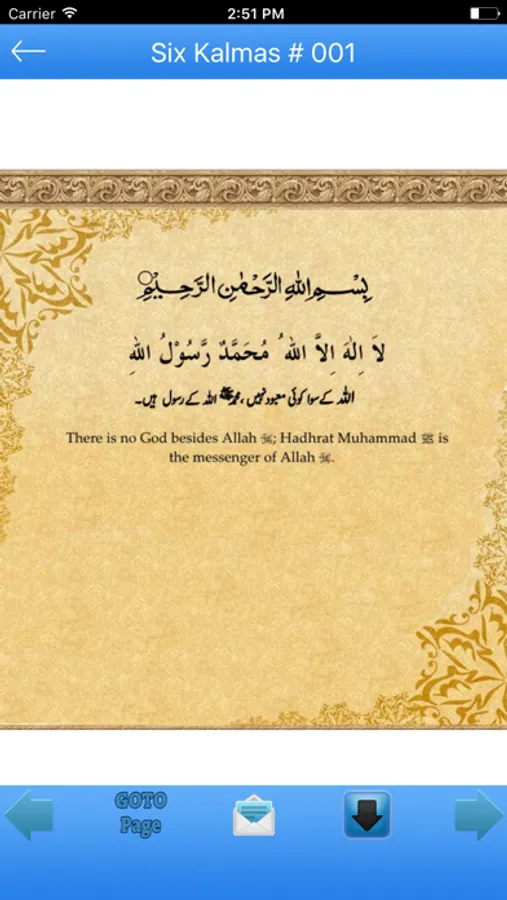 Carrier 2:51 PM
Six Kalmas # 001
بِسْمِ اللهِ الرَّحْمٰنِ الرَّحِيْمِ
لاَ اِلٰهَ اِلاَّ اللهُ مُحَمَّدٌ رَّسُوْلُ اللهِ
اللہ کے سوا کوئی معبود نہیں، محمدﷺ اللہ کے رسول ہیں۔
There is no God besides Allah ; Hadhrat Muhammad ﷺ is
the messenger of Allah .
GOTO
Page